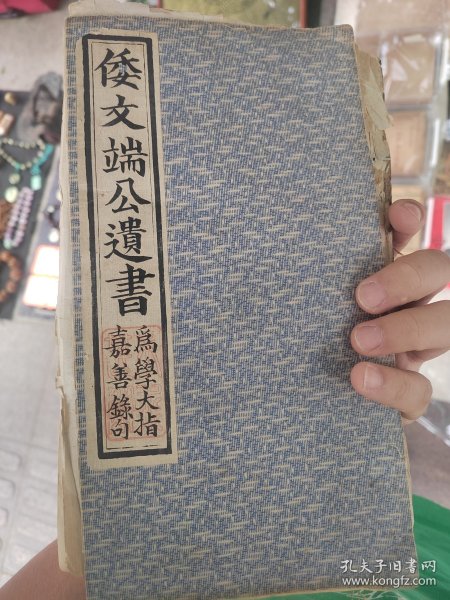 倭文端公遺書
爲學大指
嘉善錄句
孔夫子旧书网
www.kongfz.com